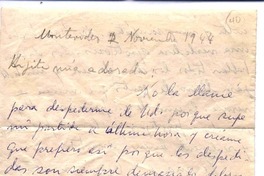 Montevideo 2 Noviembre 1944
Hijita mía adorada: No la llamé
para despedirme de Uds. porque supe
mi partida a última hora y créame
que prefiero así porque las despedi
das son siempre